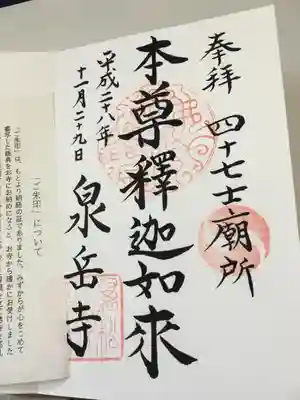 奉拝
四十七士廟所
本尊釋迦如來
平成二十八年
十一月二十九日
泉岳寺
「ご朱印」について
「ご朱印」は、もとより納経の証でありました。みずからが心をこめて
書写した経典をお寺にお納めになると、お寺から確かにお受けしました